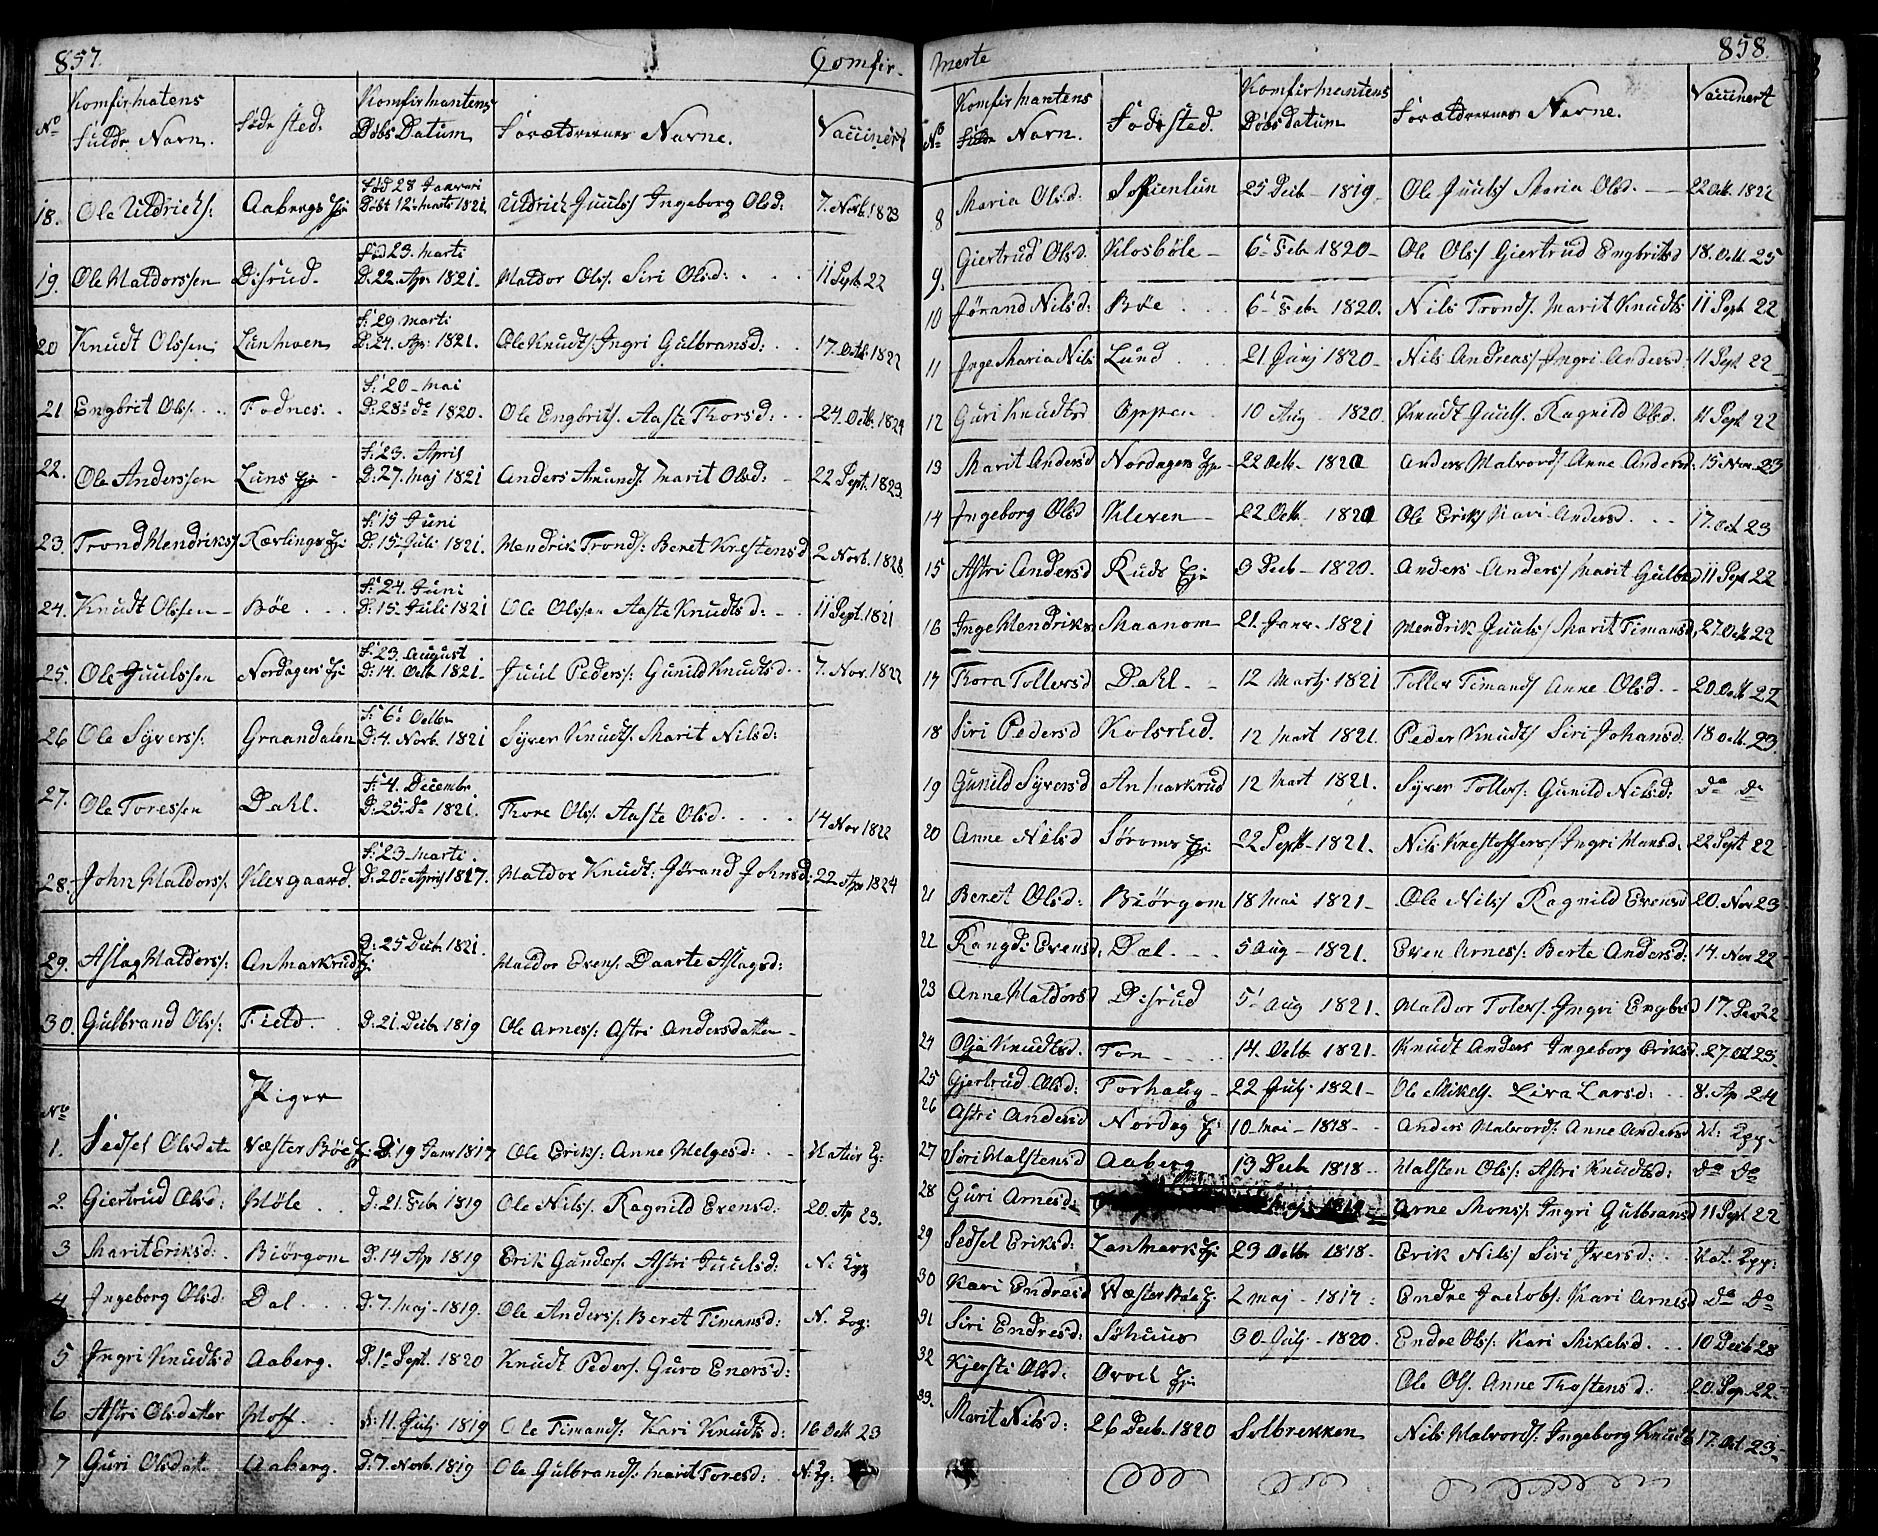 857. Comfir-
No Komfirmatens Fulde Navn. Føde sted. Komfirmantens Døbs Datum Forældrernes Navne. Vaccinert
18. Ole Uldrichs: Aabergs Eje Fød 28 Januari Døbt 12te Marts 1821 Uldrich Juuls/ Ingeborg Olsd: 7. Novb. 1823
19. Ole Haldorssen Disrud. Fød 23. marti D: 22. Apr 1821. Haldor Ols/. Siri Olsd: 11 Sept. 22
20 Knudt Olssen Lunhuen F: 29 marti D: 24. Apr. 1821. Ole Knudts/ Ingri Gulbransd: 17. Octb. 1822
21 Engbrit Ols: Fodnes. F: 20 mai D: 28de do 1820. Ole Engbrits/. Aaste Thorsd: 24. Octb. 1824
22. Ole Anderssen Luns Eje F: 23. April D: 27. Maj 1821 Anders Amunds/. Marit Olsd: 22 Sept. 1823.
23. Trond Hendriks/ Kærlings Eje F: 15 Juni D: 15 Juli 1821. Hendrik Tronds/: Beret Krestensd 2 Novb. 1828.
24. Knudt Olssen Bøe F: 24. Juni D: 15. Juli 1821 Ole Olssen Aaste Knudtsd: 11 Sept. 1821
25. Ole Juulssen Nordagers Eje F: 23. August D: 14. Octb 1821. Juul Peders/: Gunild Knudtsd. 7. Nov. 1822
26 Ole Syvers/: Graandalen F: 6te Octbr D: 4. Norb. 1821 Syver Knudts/. Marit Nilsd:
27. Ole Toressen Dahl. F: 4. Decembr D: 25. Do 1821. Thore Ols/. Aaste Olsd. 14 Nov 1822
28. John Haldors/. Klevgaard. F: 23 marti. D: 20de April 1817. Haldor Knudt: Jørand Johnsd: 22 Apr 1824
29. Aslag Haldors/: Anmarkrud Eje D: 25 Decb. 1821. Haldor Evens/. Daarte Aslagsd:
30. Gulbrand Ols/: Field. D: 21. Decbr 1819 Ole Arnes/: Astri Andersdatter
Piger
No
1. Sedsel Olsdatt Væster Bøe Eje D: 19 Janr 1817 Ole Eriks/: Anne Helgesd: Natur Eg:
2. Giertrud Olsd: Høle D: 21. Febr 1819 Ole Nils/. Ragnild Evensd: 20. Ap 23.
3 Marit Eriksd: Biørgom D: 14 Ap 1819 Erik Gunders/. Astri Juulsd: N:
4. Ingeborg Olsd: Dal D: 7. maj 1819. Ole Anders/: Beret Timansd: N.
5 Ingri Knudtsd Aaberg. D: 1te Sept. 1820 Knudt Peders/. Guro Enersd:
6 Astri Olsdatter Hoff D: 11. July 1819 Ole Timands/: Kari Knudtsd: 16 Octb 23
7 Guri Olsdatt. Aaberg. D: 7. Norb. 1819 Ole Gulbrands/: Marit Toresd: N: Eg:
merte 858.
No Komfirmantens Navn. Fødested. Komfirmantens Døbsdatum Forældrernes Navne. Vaccinert
8 Maria Olsd: Sofienlun 25 Decb 1819 Ole Juuls/ Maria Olsd. 22 Octb. 1822
9. Giertrud Olsd. Klosbøle 6te Feb 1820 Ole Ols/ Giertrud Engbritsd 18. Octb. 25
10 Jørand Nilsd: Bøe 6te Feb 1820. Nils Tronds/. Marit Knudts: 11 Sept 22
11 Inge Maria Nils Lund 21 Junj 1820 Nils Andreas/ Ingri Andersd. 11 Sept 22
12 Guri Knudtsd Oppen 10 Aug 1820. Knudt Juuls/. Ragnild Olsd. 11 Sept 22
13 Marit Andersd Nordagers Eje 22 Octb. 1820 Anders Halvords/ Anne Andersd: 15 Nov. 23
14 Ingeborg Olsd Kleven 22 Octb. 1820 Ole Eriks/ Kari Andersd. 17. Oct 23
15 Astri Andersd Ruds Eje 3 Decb 1820. Anders Anders/ Marit Gulbrd 11 Sept 22
16 Inge Hendriks Haanom 21. Janr. 1821 Hendrik Juuls/ Marit Timansd, 27. Octb 22
17 Thora Tollersd Dahl. 12 Martj 1821 Toller Timands/ Anne Olsd. 20. Octb 22
18 Siri Pedersd Kolsrud. 12 Mart 1821. Peder Knudts/ Siri Johansd: 18 octb. 23.
19 Gunild Syversd Anmarkrud 12 Mart 1821. Syver Tollers/. Gunild Nilsd: Do Do
20 Anne Nilsd Sørums Eje 22 Septb 1821. Nils Krestoffers/ Ingri Hansd: 22 Sept 22
21 Beret Olsd: Biørgom 18 Mai 1821 Ole Nils/ Ragnild Evensd 20. Nov 23
22 Rangdi Evensd: Dal. 5 Aug 1821. Even Arnes/: Berte Andersd: 14. Nov 22
23 Anne Haldorsd Disrud 5te Aug 1821. Haldor Tolers/. Ingri Engbrd 17. Decb 22
24 Olja Knudtsd. Ton 14. Octb 1821. Knudt Anders Ingeborg Eriksd. 27. Oct 23.
25 Gjertrud Olsd: Torhaug 22 July 1821 Ole Mikels/. Liva Larsd: 8. Ap 24
26 Astri Andersd Nordag Eje 10 Mai 1818 Anders Halvords/: Anne Andersd N:
27 Siri Halstensd Aaberg 13 Decb 1818 Halsten Ols/: Astri Knudtsd: Do Do
28 Guri Arnesd: maj 1819 Arne Mons/: Ingri Gulbransd 11 Sept 22
29 Sedsel Eriksd: Lanmark Eje 23 Octb 1818 Erik Nils/ Siri Iversd: Nat.
30 Kari Endresd Wæster Bøle Ej 2 maj 1817: Endre Jackobs/: Kari Arnesd Do Do
31 Siri Endresd: Søhuus 30 July 1820. Endre Ols/: Kari Mikelsd. 10 Decb 28
32 Kjersti Olsd. Ovoel Eje Ole Ols/. Anne Thostensd: 20. Sep. 22.
33. Marit Nilsd: 26 Decb. 1820 Solbrekken Nils Halvords/: Ingeborg Knudts 17. Oct 23